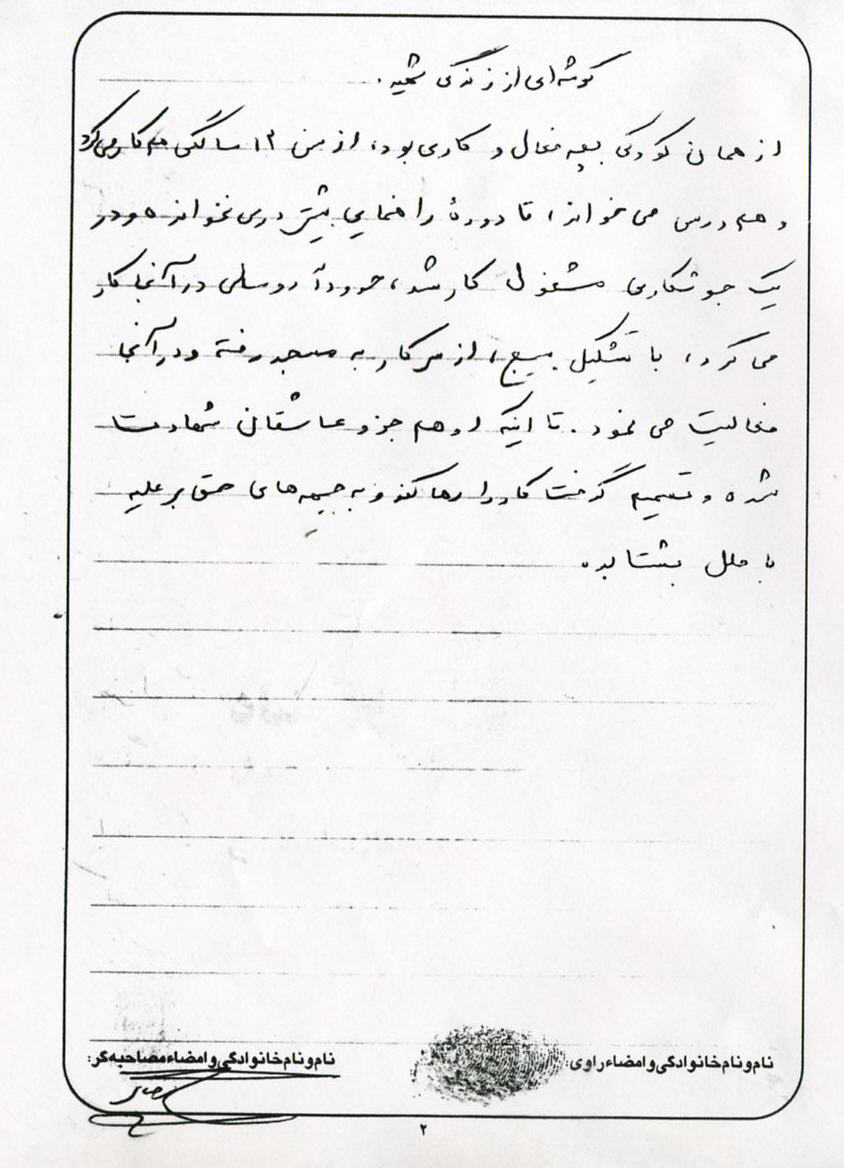 گوشه‌ای از زندگی شهید.
از همان کودکی بچه فعال و کاری بود، از سن ۱۲ سالگی هم کار می‌کرد
و هم درس می خواند، تا دورهٔ راهنمایی بیشتر درس نخواند و در
یک جوشکاری مشغول کار شد، حدوداً دو سالی در آنجا کار
می کرد، با تشکیل بسیج، از سر کار به مسجد رفته و در آنجا
فعالیت می نمود. تا اینکه او هم جزو عاشقان شهادت
شده و تصمیم گرفت کار را رها کند و به جبهه های حق بر علیه
باطل بشتابد.
نام و نام خانوادگی و امضاء راوی:
نام و نام خانوادگی و امضاء مصاحبه‌گر:
۲